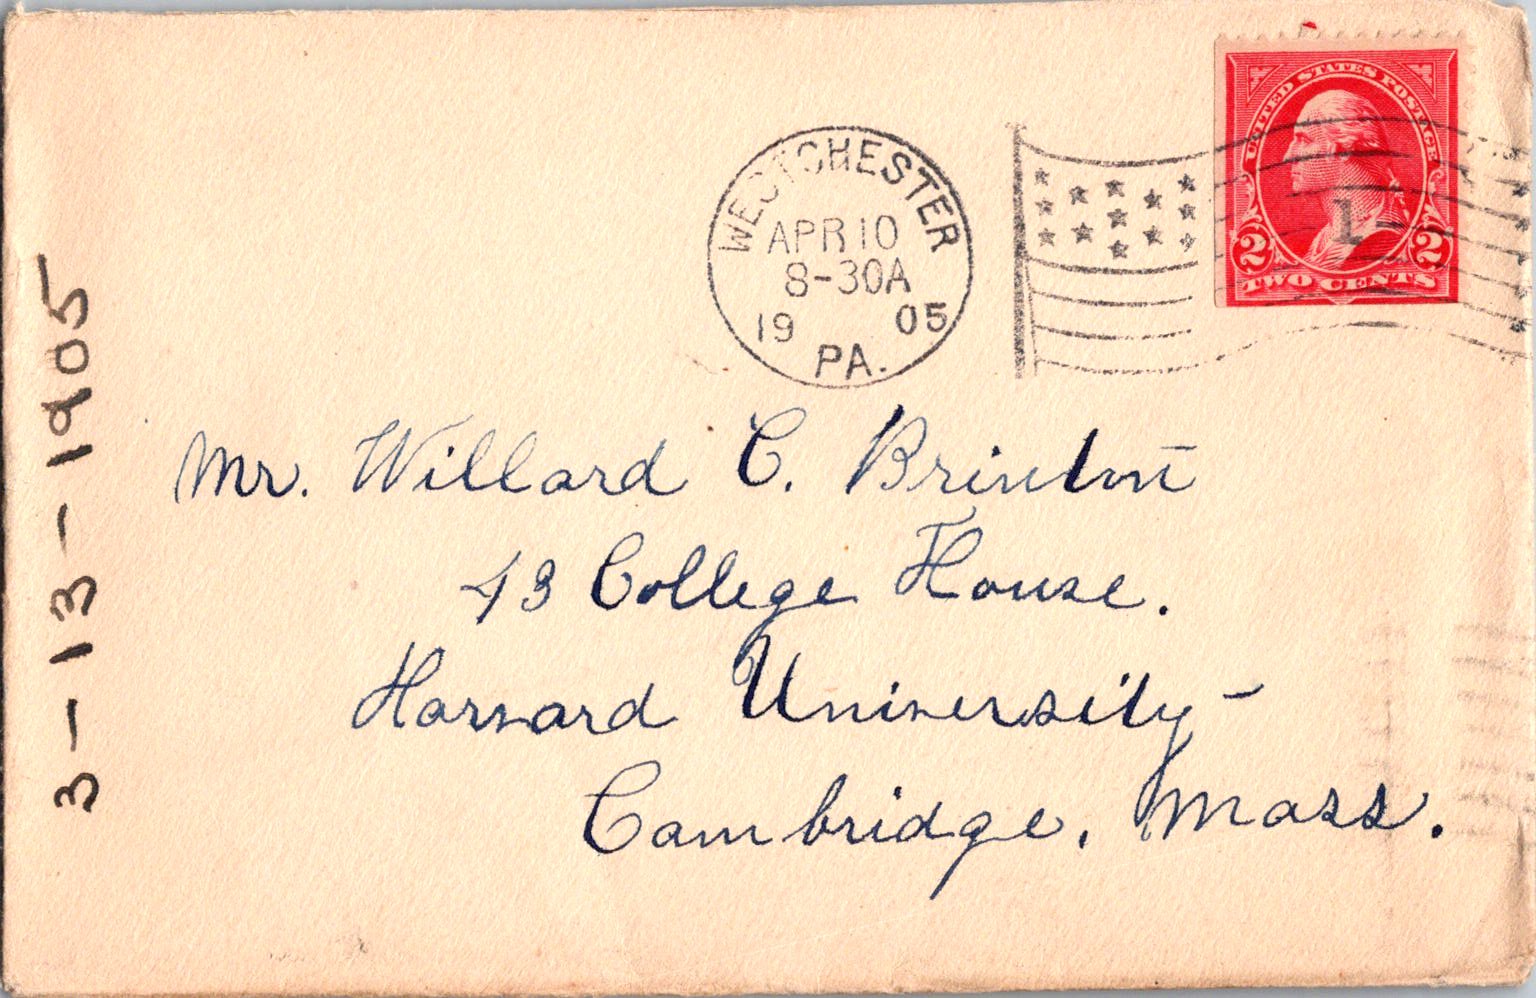 WESTCHESTER
APR 10
8-30A
19 05
PA.
UNITED STATES POSTAGE
1
2 2
TWO CENTS
Mr. Willard C. Brinton
43 College House.
Harvard University-
Cambridge, Mass.
3-13-1905